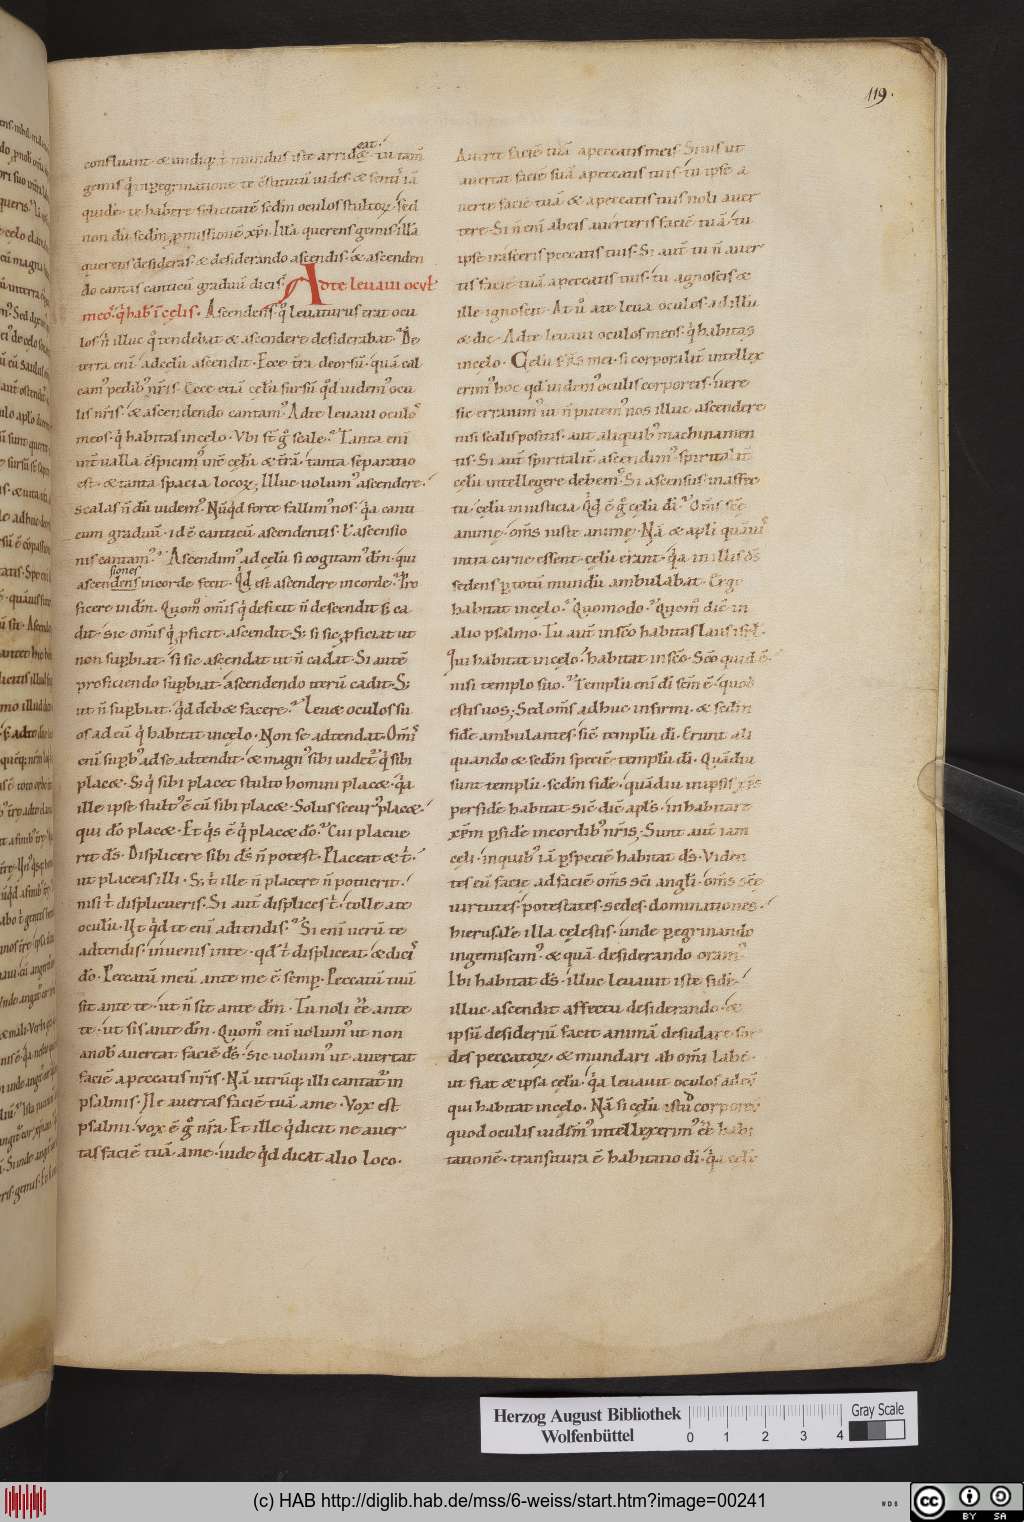 119.
confluant · & undiq; t mundus iste arrideat · tu tam̄
gemis q̇ inpegrinatione te c̄stitutū uides · & sentis iā
quidē te habere felicitatē sed in oculos stultoꝝ · sed
non dū sedm̄ ꝓmissionē xp̄i · Illā querens gemis illā
querens desideras · & desiderando ascendis · & ascenden
do cantas canticū graduū dicis · Ad te leuaui ocul'
meos q̇ habi· ī cęlis · Ascendens q̊ leuaturus erat ocu
los n̄ illuc q̊ tendebat & ascendere desiderabat · De
terra eni ad cęlū ascendit · Ecce tr̄a deorsū · quā cal
cam' pedib' nr̄is · Ecce etiā cęlū sursū qd uidem' ocu
lis nr̄is · & ascendendo cantam' Ad te leuaui oculo'
meos · q̇ habitas in cęlo · Vbi st̄ g̊ scale · Tanta eni
int̄ualla c̄spicim' int̄ cęlū & t̄rā · tanta separatio
est · & tanta spacia locoꝝ; Illuc uolum' ascendere ·
scalas n̄ dū uidem' Nūqd forte fallim' nos · q̇a canti
cum graduū · id ē canticū ascendentis · l' ascensio
nis cantam' · Ascendim' ad cęlū si cogitam' dm̄ · qui
siones
ascendens in corde fecit · Qd est ascendere in corde · Pro
ficere in dm̄ · Quom̊ om̄is q̇ deficit n̄ descendit s; ca
dit · sic om̄is q̇ ꝓficit · ascendit · S; si sic ꝓficiat ut
non suꝑbiat · si sic ascendat ut n̄ cadat · Si autē
proficiendo suꝑbiat · ascendendo iterū cadit · S;
ut n̄ suꝑbiat · qd deb& facere · Leu& oculos su
os ad eū q̇ habitat in cęlo · Non se adtendat · Om̄is
eni suꝑb' ad se adtendit · & magn' sibi uidet' q̇ sibi
plac& · S; q̇ sibi placet stulto homini plac& · q̇a
ille ipse stult' ē cū sibi plac& · Solus secur' plac& ·
qui dō plac& · Et q̇s ē q̇ plac& dō · Cui placue
rit ds̄ · Displicere sibi ds̄ n̄ potest · Placeat & t' ·
ut placeas illi · S; t' ille n̄ placere n̄ potuerit ·
nisi t' displicueris · Si aut̄ displices t' · tolle a te
oculū · Vt qd te eni adtendis · Si eni uerū te
adtendis · inuenis in te · qd t' displiceat · & dici'
dō · Peccatū meū ante me ē semꝑ · Peccatū tuū
sit ante te · ut n̄ sit ante dm̄ · Tu noli ēē ante
te · ut sis ante dm̄ · Quom̊ eni uolum' ut non
a nob' auertat faciē ds̄ · sic uolum' ut auertat
faciē a peccatis nr̄is · Nā utrūq; illi cantat' in
psalmis · Ne auertas faciē tuā a me · Vox est
psalmi · uox ē g̊ nr̄a · Et ille q̇ dicit ne auer
tas faciē tuā a me · uide qd dicat alio loco ·
Auerte faciē tuā a peccatis meis · Si uis ut
auertat faciē suā a peccatis tuis · tu ipse a
uerte faciē tuā & a peccatis tuis noli auer
tere · Si n̄ eni ab eis auerteris faciē tuā · tu
ipse irasceris peccatis tuis · Si aut̄ tu n̄ auer
tis faciē tuā a peccatis tuis · tu agnoscis &
ille ignoscit · At ů a te leua oculos ad illū
& dic · Ad te leuaui oculos meos · q̇ habitas
in cęlo · Cęlū fr̄s mei · si corporalit̄ intellex
erim' hoc qd uidem' oculis corporeis · uere
sic erraum' ut n̄ putem' nos illuc ascendere
nisi scalis positis · aut aliquib' machinamen
tis · Si aut̄ spiritalit̄ ascendim' spiritalit̄
cęlū intellegere debem' · Si ascensus in affec
tu · cęlū in iusticia · Qd ē g̊ cęlū dī · Om̄s scē
animę · om̄s iuste animę · Nā & apl̄i quāuis
in tra carne essent · cęlū erant · q̇a in illis ds̄
sedens ꝑ totū mundū ambulabat · Ergo
habitat in cęlo · Quomodo · Quom̊ dic̄ in
alio psalmo · Tu aut̄ in scō habitas laus isrl' ·
Qui habitat in cęlo · habitat in scō · Scō quid ē ·
nisi templo suo · Templū eni dī scm̄ ē · quod
estis uos; Sed om̄s adhuc infirmi · & sedm̄
fidē ambulantes · sic̄ templū dī · Erunt ali
quando & sedm̄ speciē templū dī · Quādiu
sunt templū · sedm̄ fidē · quādiu in ipsis xp̄s
per fidē habitat · sic̄ dic̄ apl̄s · inhabitare
xp̄m ꝑ fidē in cordib' nr̄is; Sunt aut̄ iam
cęli · in quib' iā ꝑ speciē habitat ds̄ · Viden
tes eū facie ad faciē om̄s scī angl̄i · om̄s scē
uirtutes · potestates · sedes · dominationes ·
hierusalē illa cęlestis · unde ꝑegrinando
ingemiscim' · & quā desiderando oram' ·
Ibi habitat ds̄ · illuc leuauit iste fidē ·
illuc ascendit affectu desiderando · &
ipsū desideriū facit animā desudare sor
des peccatoꝝ · & mundari ab om̄i labē ·
ut fiat & ipsa cęlū · q̇a leuauit oculos ad eū
qui habitat in cęlo · Nā si cęlū istud corporeis
quod oculis uidem' intellexerim' ēē habi
tationē · transitura ē habitatio dī · q̇a cęlū
Herzog August Bibliothek
Wolfenbüttel
0 1 2 3 4
Gray Scale
(c) HAB http://diglib.hab.de/mss/6-weiss/start.htm?image=00241
WDB
cc BY SA